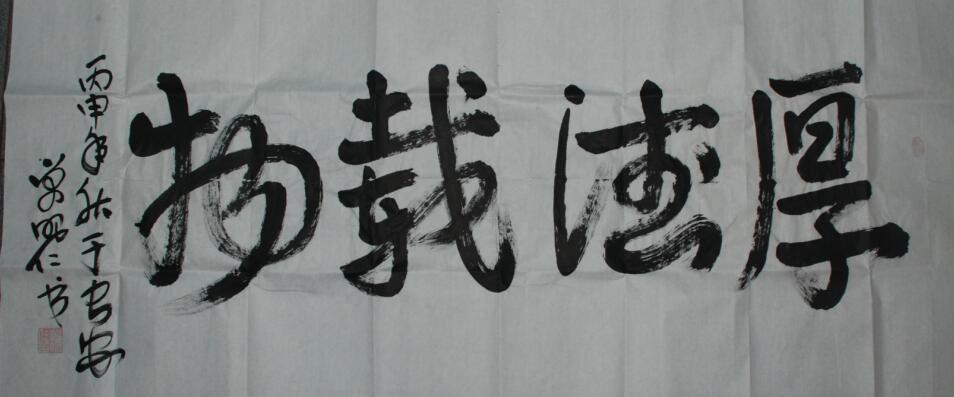 厚德载物
丙申年秋于长安
仁书